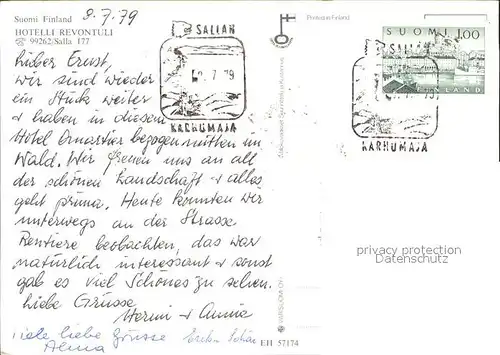 Suomi Finland 8.7.79
HOTELLI REVONTULI
☏ 99262/Salla 177
Lieber Ernst,
wir sind wieder
ein Stück weiter
+ haben in diesem
Hotel Quartier bezogen mitten im
Wald. Wir freuen uns an all
der schönen Landschaft + alles
geht prima. Heute konnten wir
unterwegs an der Strasse
Rentiere beobachten, das war
natürlich interessant + sonst
gab es viel Schönes zu sehen.
Liebe Grüsse
Hermi + Annie
Viele liebe Grüsse
Alma
EH 57174
Printed in Finland
SALLAN
7 79
KARHUMAJA
SUOMI 1.00
FINLAND
SALLAN
KARHUMAJA
privacy protection
Datenschutz